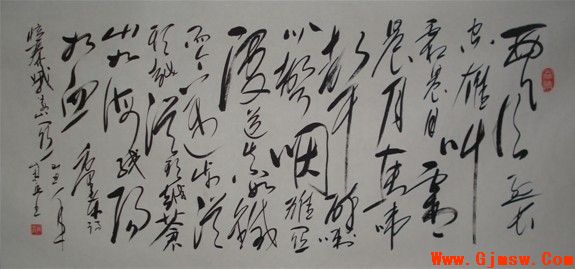 西风烈长
空雁叫
霜晨月霜
晨月马蹄
声碎喇
叭声咽雄关
漫道真如铁
而今迈步从
头越从头越苍
山如海残阳
如血
忆秦娥娄山关
Www.Gjmsw.Com